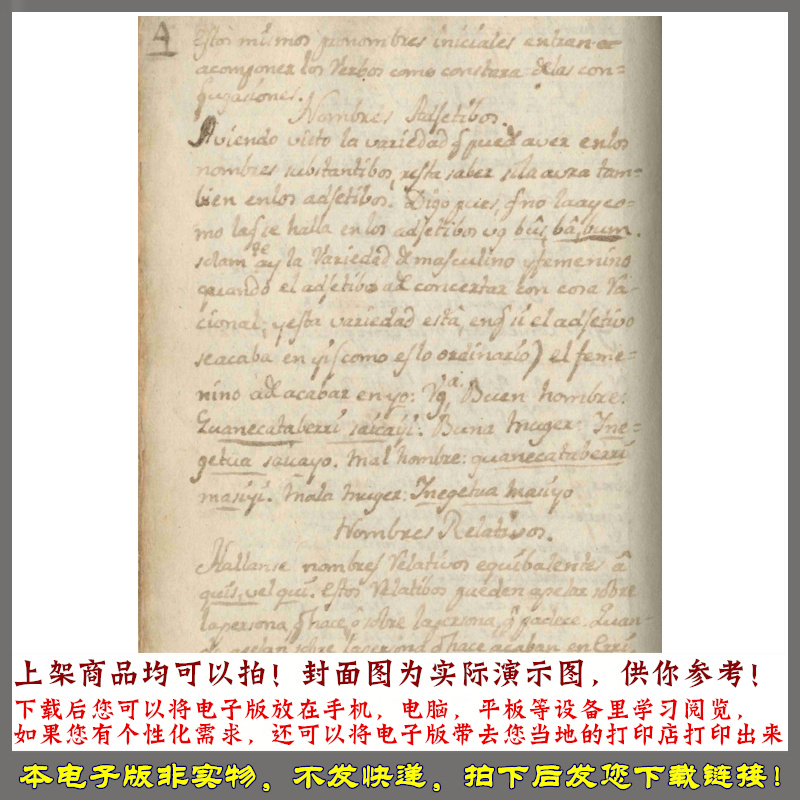 4
Estos mismos pronombres iniciales entran a
acomponer los Verbos como constara de las con=
jugasiones.
Nombres Adjetibos.
Aviendo visto la variedad q̃ pued aver en los
nombres substantibos, resta saber si la avra tam-
bien en los adjetibos. Digo pues, q̃ no la ay co-
mo la q̃ se halla en los adjetibos vg bûs, bâ, bum.
solam.te ay la Variedad de masculino y femenino
quando el adjetibo ad concertar con cosa Ra-
cional; y esta variedad està, en q̃ si el adjetivo
se acaba en yi (como es lo ordinario) el feme-
nino ad acabar en yo: Vg.a Buen hombre:
Zuanecataberri saicayi: Buena muger: Ine-
getua saiiayo. Mal hombre: quanecataberrii
masiyi. Mala muger: Inegetua masiyo
Nombres Relativos.
Hallanse nombres Relativos equibalentes â
quis, vel qui. Estos Relatibos pueden apelar sobre
la persona q̃ hace, ô sobre la persona, q̃ padece. Quan-
apelan sobre la persona q̃ hace acaban en
上架商品均可以拍！封面图为实际演示图，供你参考！
下载后您可以将电子版放在手机，电脑，平板等设备里学习阅览，
如果您有个性化需求，还可以将电子版带去您当地的打印店打印出来
本电子版非实物，不发快递，拍下后发您下载链接！